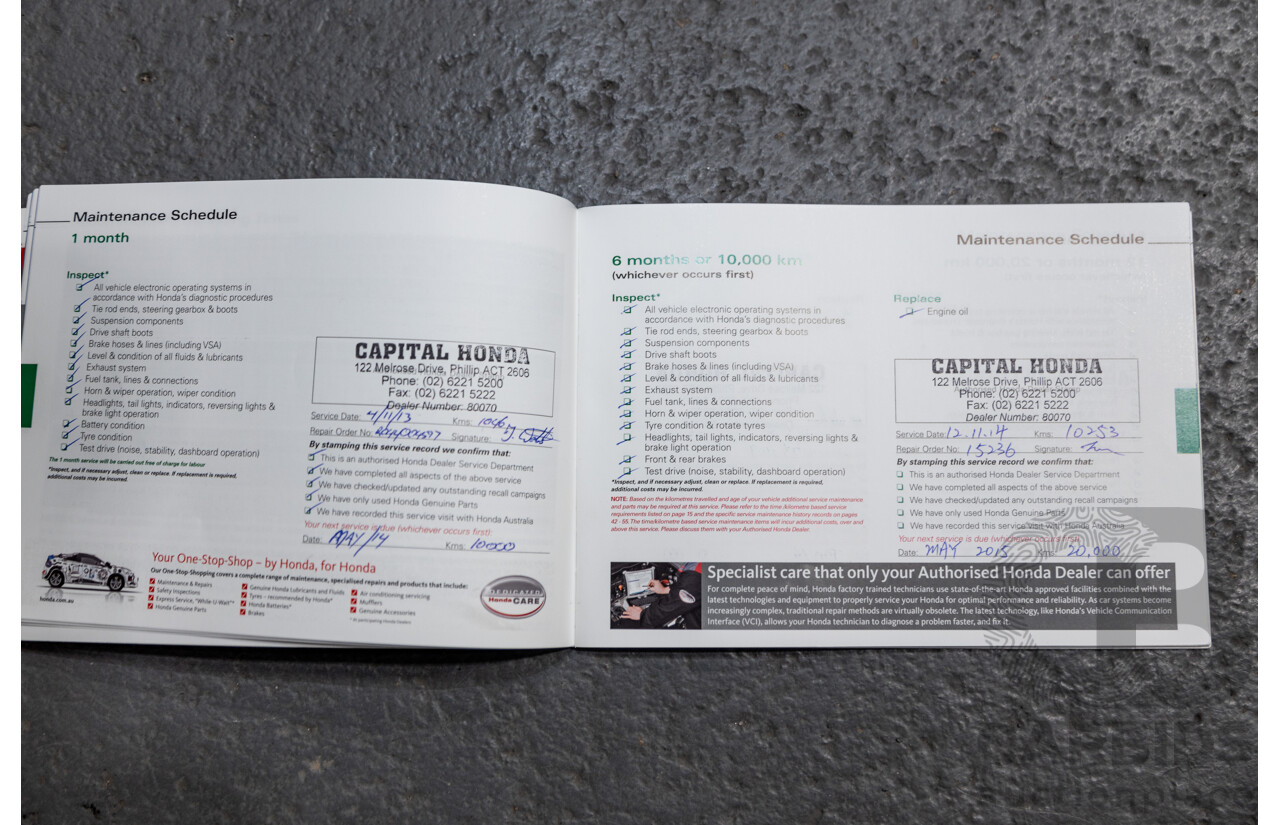 Maintenance Schedule
1 month
Inspect*
All vehicle electronic operating systems in
accordance with Honda's diagnostic procedures
Tie rod ends, steering gearbox & boots
Suspension components
Drive shaft boots
Brake hoses & lines (including VSA)
Level & condition of all fluids & lubricants
Exhaust system
Fuel tank, lines & connections
Horn & wiper operation, wiper condition
Headlights, tail lights, indicators, reversing lights &
brake light operation
Battery condition
Tyre condition
Test drive (noise, stability, dashboard operation)
The 1 month service will be carried out free of charge for labour
*Inspect, and if necessary adjust, clean or replace. If replacement is required,
additional costs may be incurred.
CAPITAL HONDA
122 Melrose Drive, Phillip ACT 2606
Phone: (02) 6221 5200
Fax: (02) 6221 5222
Dealer Number: 80070
Service Date: 4/11/13 Kms: 1046
Repair Order No: Signature:
By stamping this service record we confirm that:
This is an authorised Honda Dealer Service Department
We have completed all aspects of the above service
We have checked/updated any outstanding recall campaigns
We have only used Honda Genuine Parts
We have recorded this service visit with Honda Australia
Your next service is due (whichever occurs first):
Date: MAY/14 Kms: 10000
Your One-Stop-Shop – by Honda, for Honda
Our One-Stop-Shopping covers a complete range of maintenance, specialised repairs and products that include:
Maintenance & Repairs
Safety Inspections
Express Service, "While-U-Wait"*
Honda Genuine Parts
Genuine Honda Lubricants and Fluids
Tyres - recommended by Honda*
Honda Batteries*
Brakes
Air conditioning servicing
Mufflers
Genuine Accessories
* At participating Honda Dealers
honda.com.au
DEDICATED
HondaCARE
Maintenance Schedule
6 months or 10,000 km
(whichever occurs first)
Inspect*
All vehicle electronic operating systems in
accordance with Honda's diagnostic procedures
Tie rod ends, steering gearbox & boots
Suspension components
Drive shaft boots
Brake hoses & lines (including VSA)
Level & condition of all fluids & lubricants
Exhaust system
Fuel tank, lines & connections
Horn & wiper operation, wiper condition
Tyre condition & rotate tyres
Headlights, tail lights, indicators, reversing lights &
brake light operation
Front & rear brakes
Test drive (noise, stability, dashboard operation)
*Inspect, and if necessary adjust, clean or replace. If replacement is required,
additional costs may be incurred.
NOTE: Based on the kilometres travelled and age of your vehicle additional service maintenance
and parts may be required at this service. Please refer to the time/kilometre based service
requirements listed on page 15 and the specific service maintenance history records on pages
42 - 55. The time/kilometre based service maintenance items will incur additional costs, over and
above this service. Please discuss them with your Authorised Honda Dealer.
Replace
Engine oil
CAPITAL HONDA
122 Melrose Drive, Phillip ACT 2606
Phone: (02) 6221 5200
Fax: (02) 6221 5222
Dealer Number: 80070
Service Date: 12.11.14 Kms: 10253
Repair Order No: 15236 Signature:
By stamping this service record we confirm that:
This is an authorised Honda Dealer Service Department
We have completed all aspects of the above service
We have checked/updated any outstanding recall campaigns
We have only used Honda Genuine Parts
We have recorded this service visit with Honda Australia
Your next service is due (whichever occurs first):
Date: MAY 2015 Kms: 20,000
Specialist care that only your Authorised Honda Dealer can offer
For complete peace of mind, Honda factory trained technicians use state-of-the-art Honda approved facilities combined with the
latest technologies and equipment to properly service your Honda for optimal performance and reliability. As car systems become
increasingly complex, traditional repair methods are virtually obsolete. The latest technology, like Honda's Vehicle Communication
Interface (VCI), allows your Honda technician to diagnose a problem faster, and fix it.